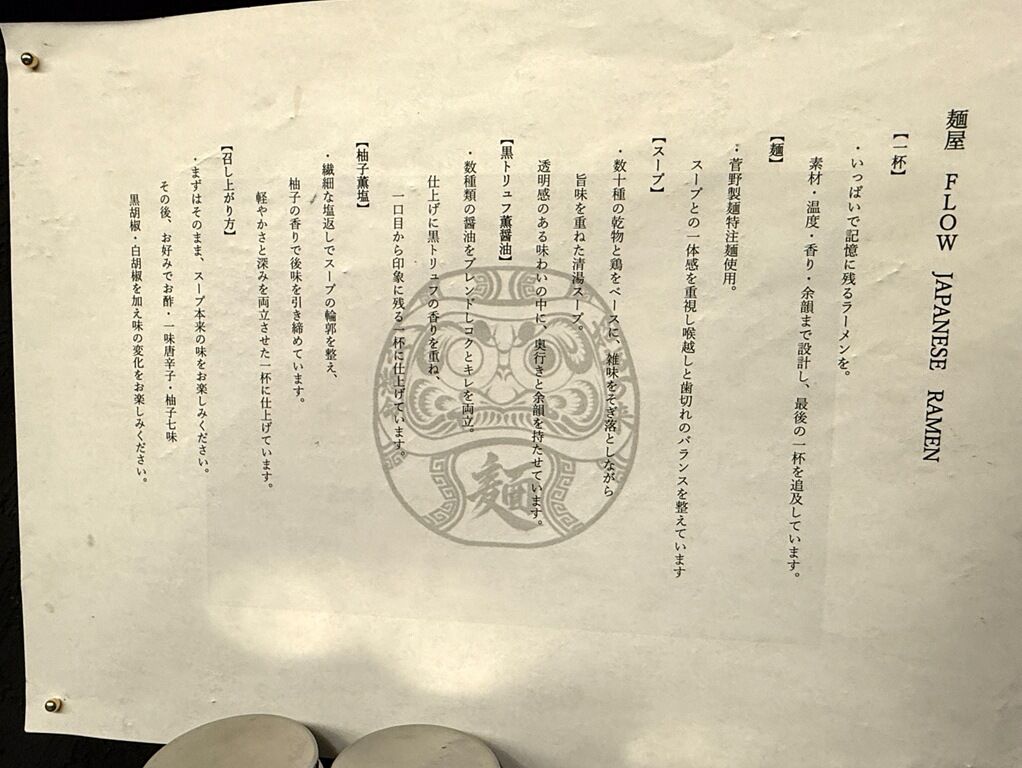 麺屋　FLOW　JAPANESE　RAMEN
【一杯】
・いっぱいで記憶に残るラーメンを。
素材・温度・香り・余韻まで設計し、最後の一杯を追及しています。
【麺】
・菅野製麺特注麺使用。
スープとの一体感を重視し喉越しと歯切れのバランスを整えています
【スープ】
・数十種の乾物と鶏をベースに、雑味をそぎ落としながら
旨味を重ねた清湯スープ。
透明感のある味わいの中に、奥行きと余韻を持たせています。
【黒トリュフ薫醤油】
・数種類の醤油をブレンドしコクとキレを両立。
仕上げに黒トリュフの香りを重ね、
一口目から印象に残る一杯に仕上げています。
【柚子薫塩】
・繊細な塩返しでスープの輪郭を整え、
柚子の香りで後味を引き締めています。
軽やかさと深みを両立させた一杯に仕上げています。
【召し上がり方】
・まずはそのまま、スープ本来の味をお楽しみください。
その後、お好みでお酢・一味唐辛子・柚子七味
黒胡椒・白胡椒を加え味の変化をお楽しみください。
麺